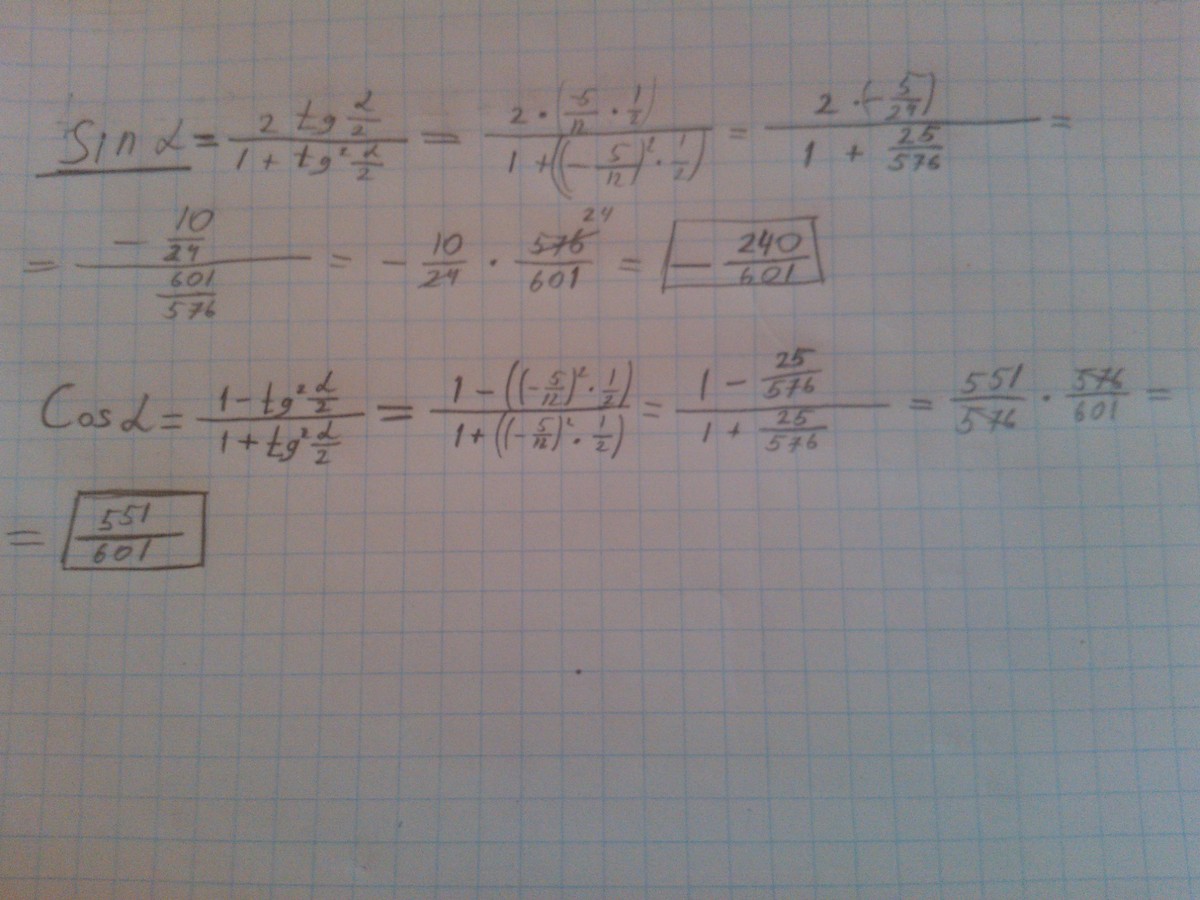 Sin α = (2 tg α/2)/(1 + tg² α/2) = (2 · (-5/12 · 1/2))/(1 + ((-5/12)² · 1/2)) = (2 · (-5/24))/(1 + 25/576) =
= (-10/24)/(601/576) = - 10/24 · 576 24/601 = - 240/601
Cos α = (1 - tg² α/2)/(1 + tg² α/2) = (1 - ((-5/12)² · 1/2))/(1 + ((-5/12)² · 1/2)) = (1 - 25/576)/(1 + 25/576) = 551/576 · 576/601 =
= 551/601